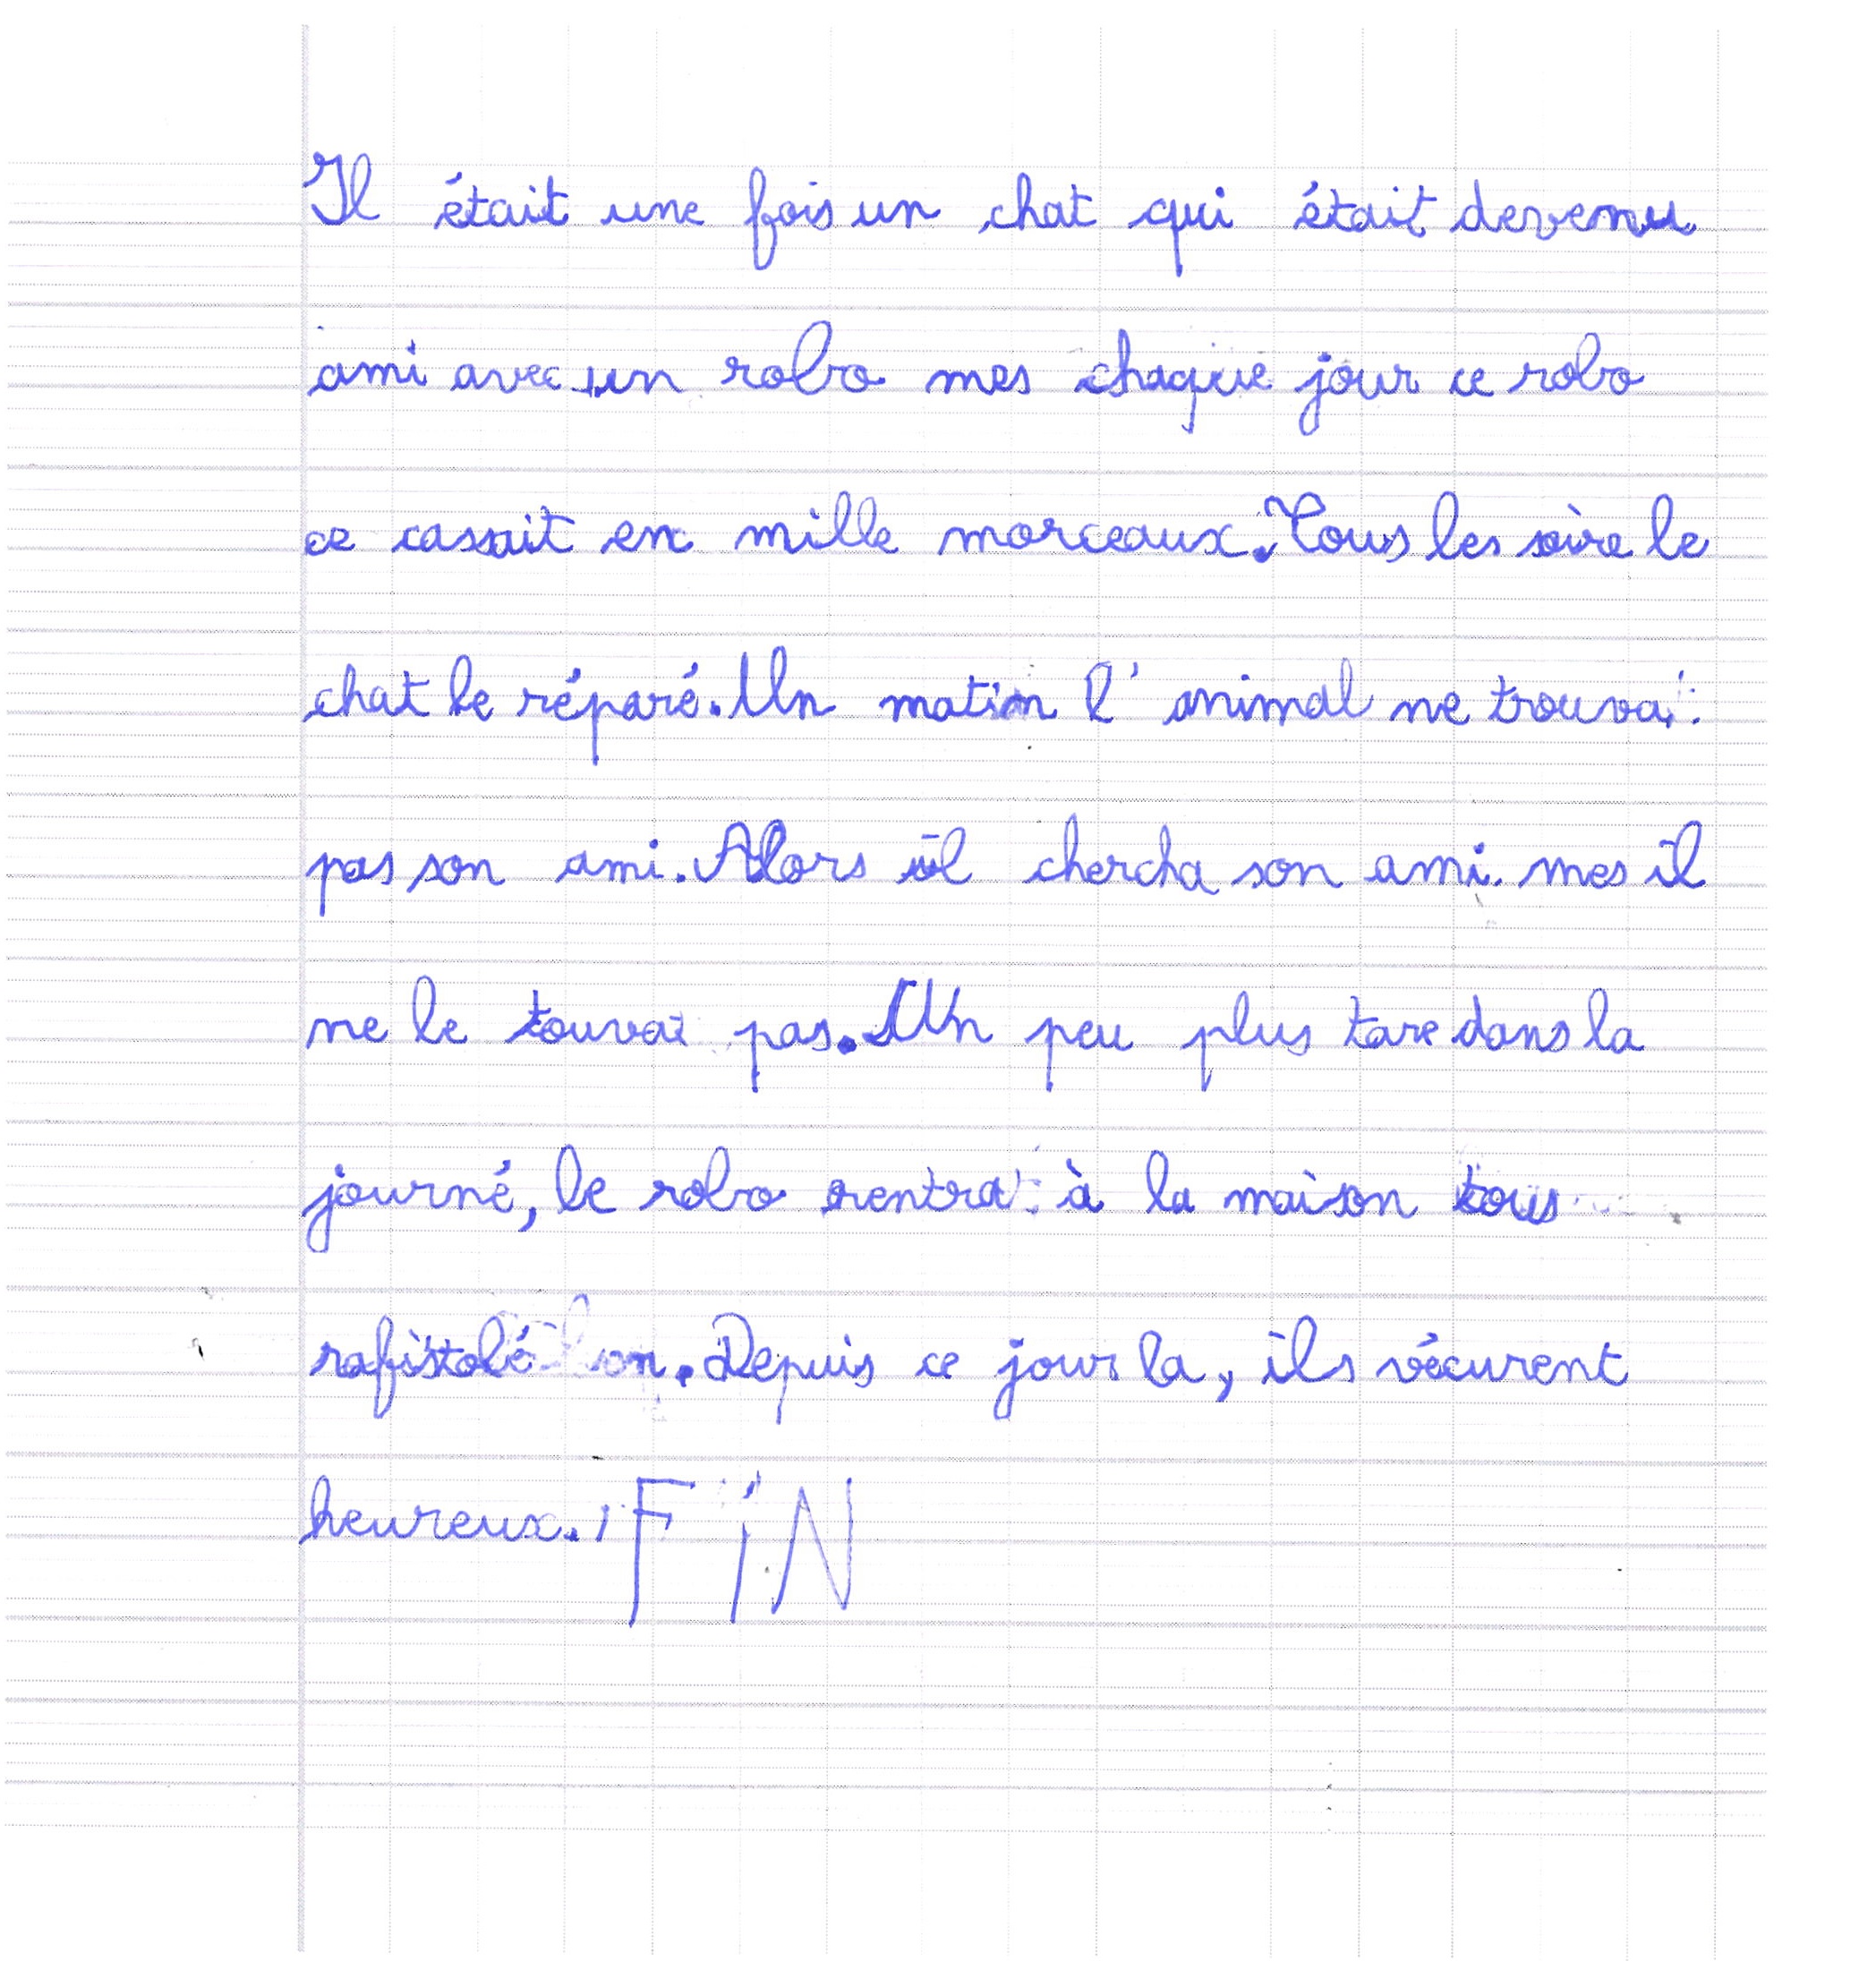 Il était une fois un chat qui était devenu
ami avec un robo mes chaque jour ce robo
ce cassait en mille morceaux. Tous les soire le
chat le réparé. Un matin l'animal ne trouvai
pas son ami. Alors il chercha son ami mes il
ne le touvai pas. Un peu plus tare dans la
journé, le robo rentra à la maison tous
rafistolé. Depuis ce jour la, ils vécurent
heureux. FIN